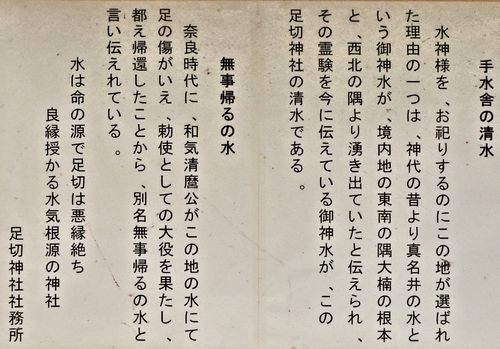 手水舎の清水
水神様を、お祀りするのにこの地が選ばれ
た理由の一つは、神代の昔より真名井の水と
いう御神水が、境内地の東南の隅大楠の根本
と、西北の隅より湧き出ていたと伝えられ、
その霊験を今に伝えている御神水が、この
足切神社の清水である。
無事帰るの水
奈良時代に、和気清麿公がこの地の水にて
足の傷がいえ、勅使としての大役を果たし、
都え帰還したことから、別名無事帰るの水と
言い伝えれている。
水は命の源で足切は悪縁絶ち
良縁授かる水気根源の神社
足切神社社務所